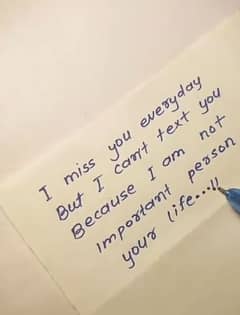 I miss you everyday
But I can't text you
Because I am not
important person
your life...!!